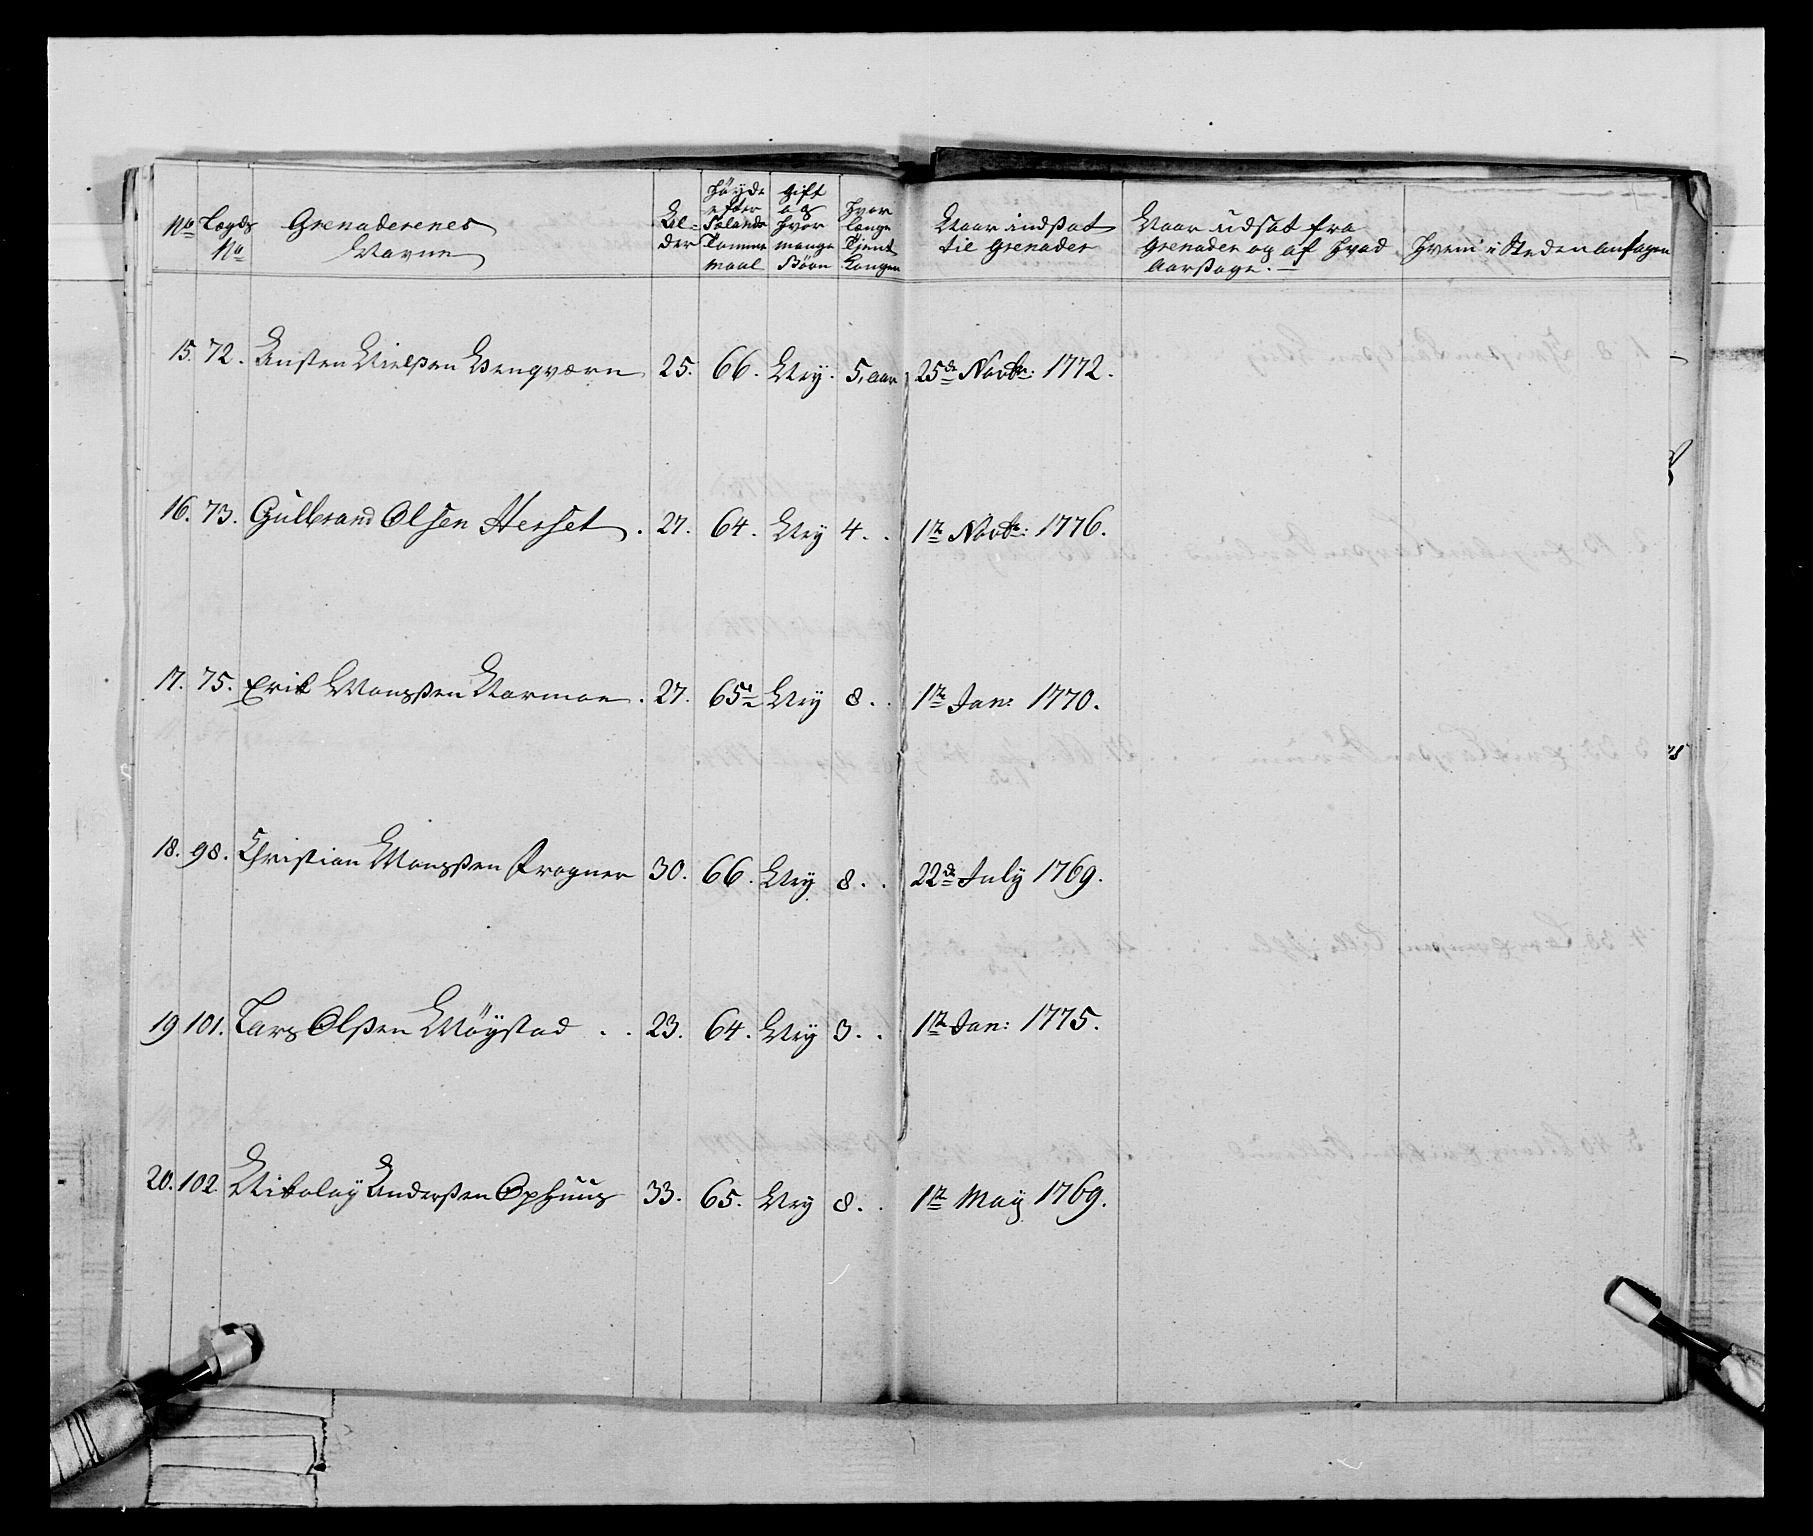 No Lægds No Grenaderenes Navne Alder Høyde efter Sælands Tomme maal Gift og hvor mange Børn Hvor længe Tient Kongen Naar indsat til Grenader Naar udsat fra Grenader og af hvad Aarsage. Hvem i Steden antagen
15. 72. Austen Nielsen Wengværn 25. 66. Ney. 5. aar 25de Novbr: 1772.
16. 73. Gulbrand Olsen Herset. 27. 64. Ney 4. . 1te Novbr: 1776.
17. 75. Erik Mongsen Narmoe. 27. 65½ Ney 8. . 1te Jan: 1770.
18. 98. Christian Mongsen Progner 30. 66. Ney 8. . 22de July 1769.
19 101. Lars Olsen Møystad . . 23. 64. Ney 3. . 1te Jan: 1775.
20. 102. Nikolay Andersen Ophuus 33. 65. Ney 8. . 1te May 1769.